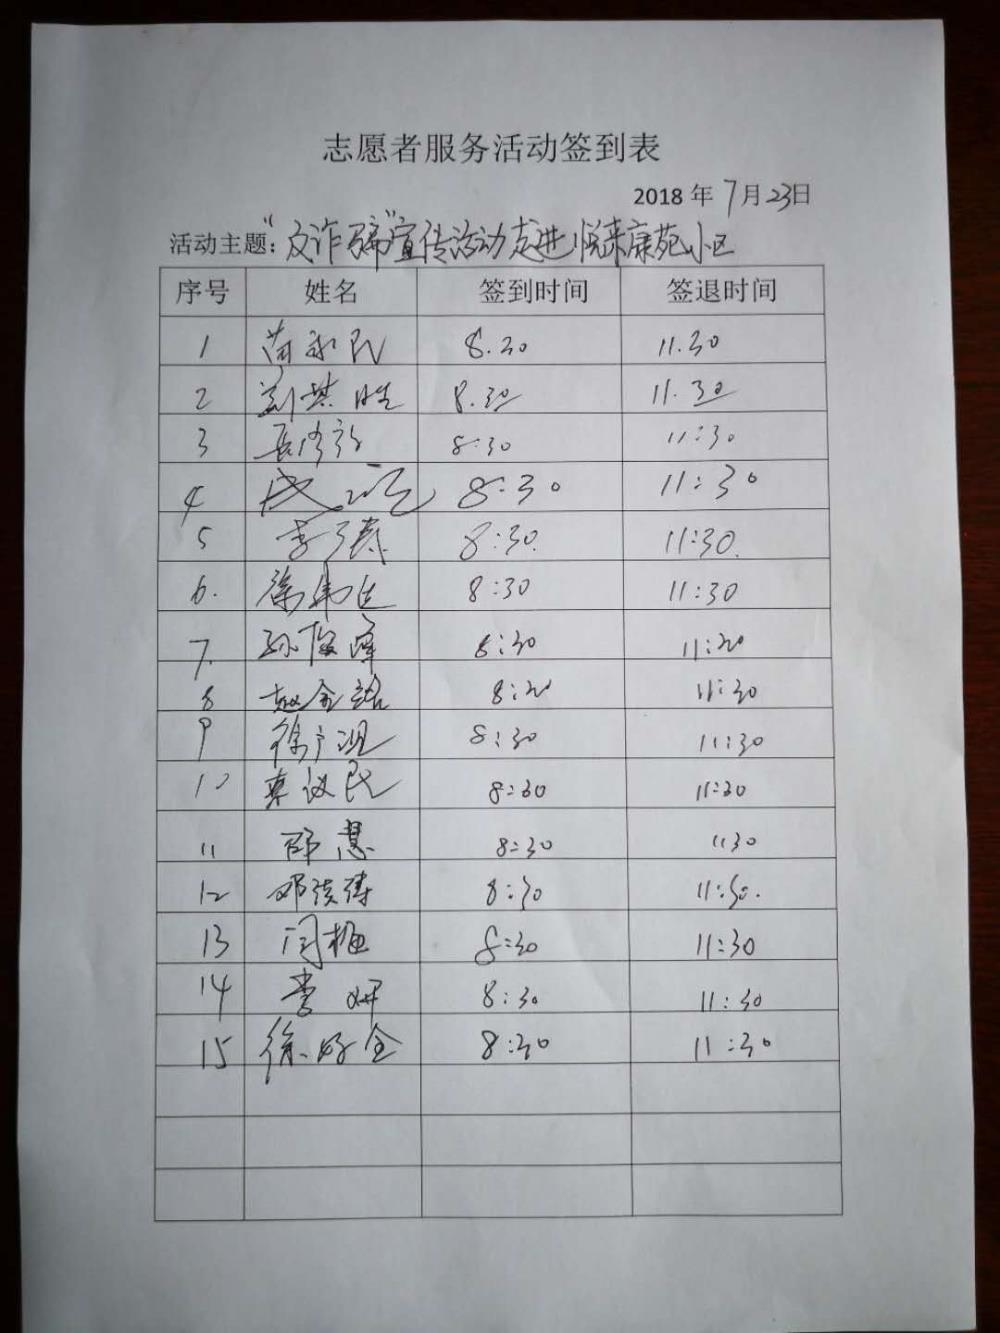 志愿者服务活动签到表
2018 年 7月23日
活动主题:"反诈骗"宣传活动走进悦来康苑小区
序号 姓名 签到时间 签退时间
1 苗永民 8.30 11.30
2 刘 胜 8.30 11.30
3 8:30 11:30
4 8:30 11:30
5 李 8:30. 11:30.
6. 徐 8:30 11:30
7. 孙俊峰 8:30 11:30
8 赵金铭 8:30 11:30
9 徐广 8:30 11:30
10 民 8:30 11:30
11 邵慧 8:30 1130
12 邓 涛 8:30 11:30.
13 闫梅 8:30 11:30
14 李妍 8:30 11:30
15 徐好全 8:30 11:30